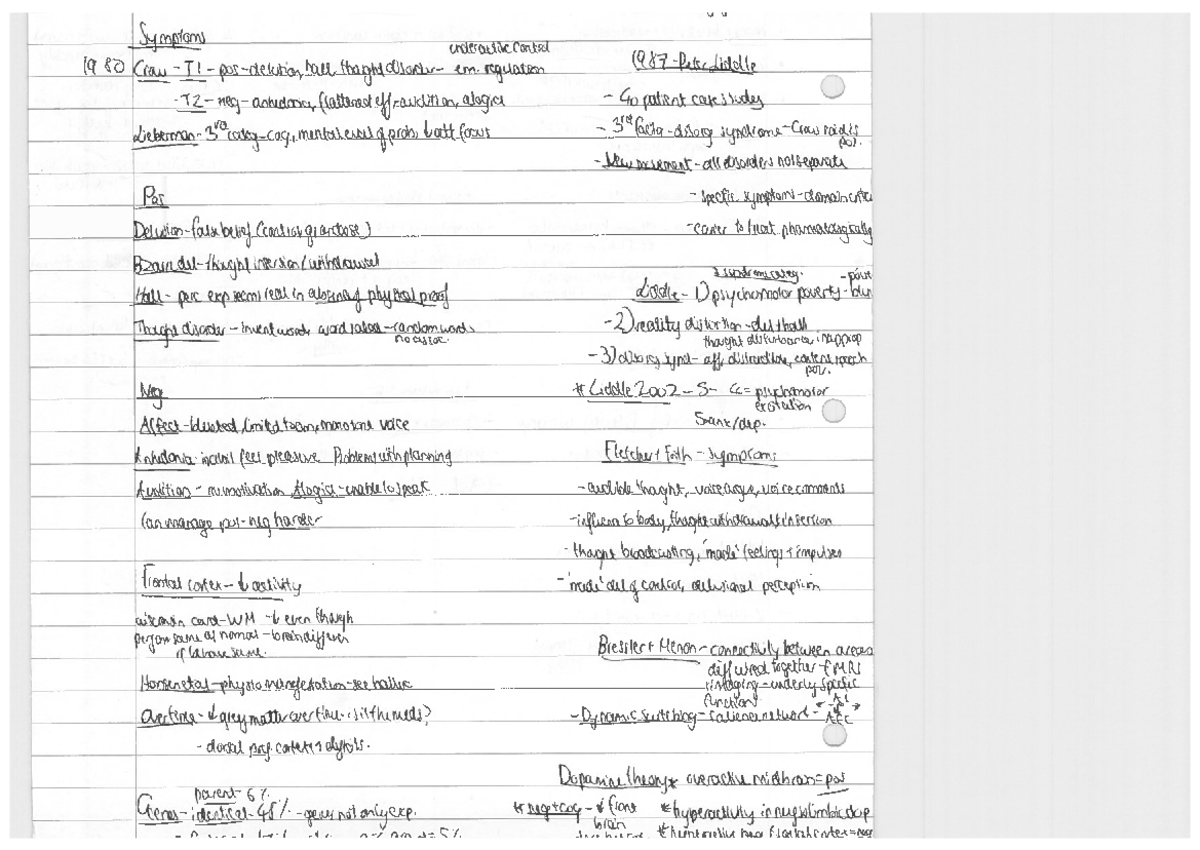 Symptoms
underactive control
1980 Crow - T1 - pos - delusion, hall, thought disorder - em. regulation
- T2 - neg - anhedonia, flattened eff, avolition, alogia
Lieberman - 3rd categ - cog, mental eval of prob, & att focus
Pos
Delusion - false belief (control, grandiose)
Bizarre del - thought insertion/withdrawal
Hall - perc exp seem real in absence of physical proof
Thought disorder - invent words, word salad - random words
no assoc.
Neg
Affect - blunted, limited, monotone voice
Anhedonia - feel pleasure Problems with planning
Avolition - no motivation Alogia - unable to speak
Can manage pos - neg harder
Frontal cortex - ↓ activity
wisconsin card - WM - ↓ even though
perform same as normal - brain different
if behave same.
Horsenetal - physio manifestation - see halluc
Overtime - ↓ grey matter over time - is it the meds?
- dorsal prefcortex
parent - 6%
Genes - identical - 48% - genes not only exp.
1987 - Peter Liddle
- 40 patient case studies
- 3rd facto - disorg syndrome - Crow
pos.
- New movement - all disorders not separate
- specific symptoms - domain
- easier to treat pharmacologically
3 syndrome categ.
Liddle - 1) psychomotor poverty -
- 2) reality distortion - del & hall
thought disturbance, inapprop
- 3) disorg synd - aff, distractible, content speech
pov.
* Liddle 2002 - 5 - = psychomotor
excitation
5 = anx/dep.
Fletcher + Frith - symptoms
- audible thought, voice argue, voice comments
- influence to body, thought withdrawal & insertion
- thought broadcasting, 'made' feelings + impulses
- 'made' del of control, delusional perception
Bressler + Menon - connectivity between areas
diff wired together - fMRI
imaging - underly specific
functions
- Dynamic switching - salience network - AI
ACC
Dopamine theory * overactive midbrain = pos
* neg + cog - ↓ front
brain
* hyperactivity in mesolimbic dop